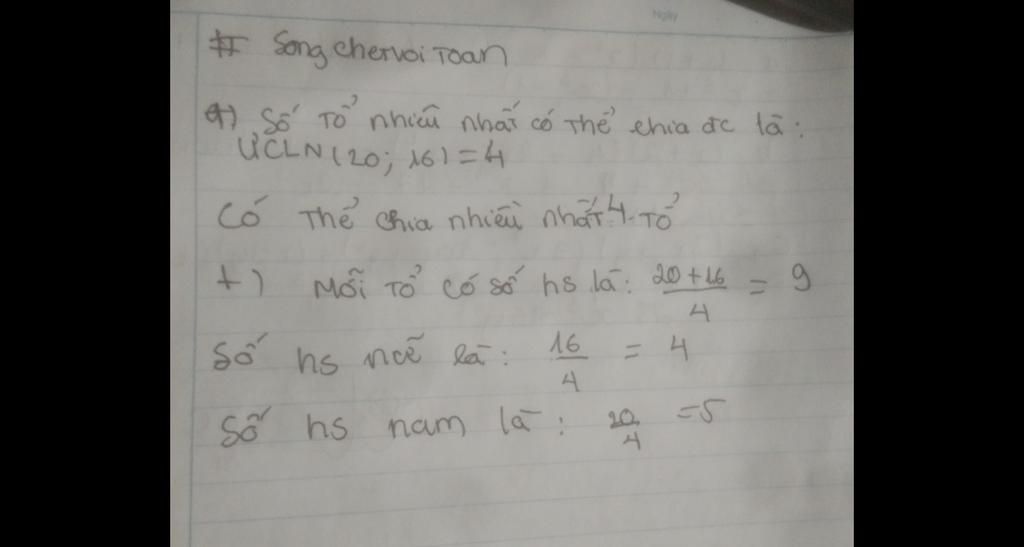 Ngày
# Song chervoi Toan
a) Số Tổ nhiều nhất có thể chia đc là:
ƯCLN(20; 16) = 4
Có Thể chia nhiều nhất 4 Tổ
+) Mỗi Tổ có số hs là: \frac{20+16}{4} = 9
Số hs nữ là: \frac{16}{4} = 4
Số hs nam là: \frac{20}{4} = 5